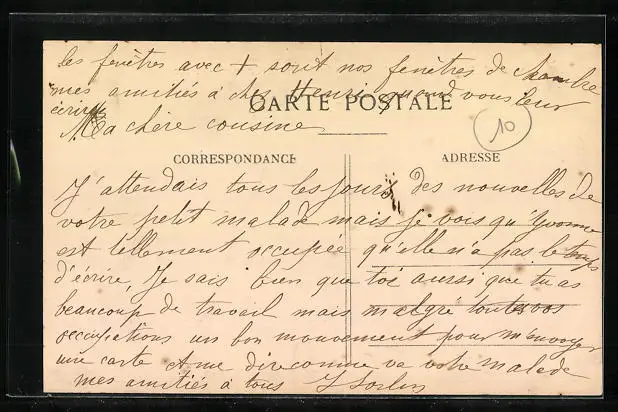 les fenêtres avec + sont nos fenêtres de chambre
mes amitiés à chez Henri quand vous leur
écrirez
CARTE POSTALE
10
Ma chère cousine
CORRESPONDANCE
ADRESSE
J'attendais tous les jours des nouvelles de
votre petit malade mais je vois qu'Yvonne
est tellement occupée qu'elle n'a pas le temps
d'écrire, Je sais bien que toi aussi que tu as
beaucoup de travail mais malgré toutes vos
occupations un bon mouvement pour m'envoyer
une carte et me dire comme va votre malade
mes amitiés à tous